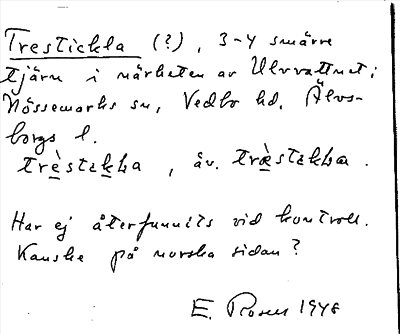 Trestickla (?), 3-4 smärre
tjärn i närheten av Ulvvattnet i
Nössemarks sn, Vedbo hd. Älvs-
borgs l.
trè̱stiḵka, äv. træ̱stikka.
Har ej återfunnits vid kontroll.
Kanske på norska sidan?
E. Rosen 1948